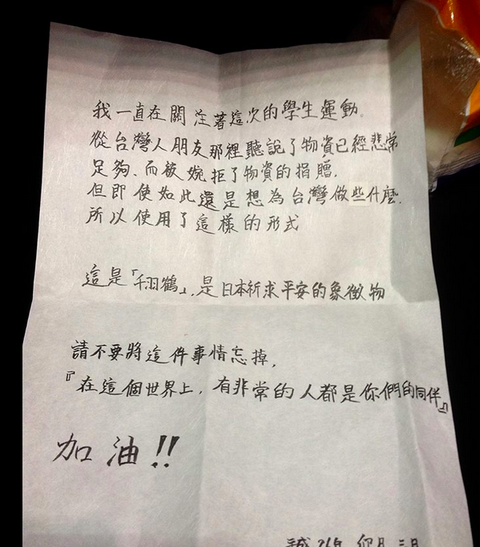 我一直在關注著這次的學生運動.
從台灣人朋友那裡聽說了物資已經悲常
足夠、而被婉拒了物資的捐贈.
但即使如此還是想為台灣做些什麼.
所以使用了這樣的形式
這是「千羽鶴」,是日本祈求平安的象徵物
請不要將這件事情忘掉,
『在這個世界上,有非常的人都是你們的同伴』
加油!!